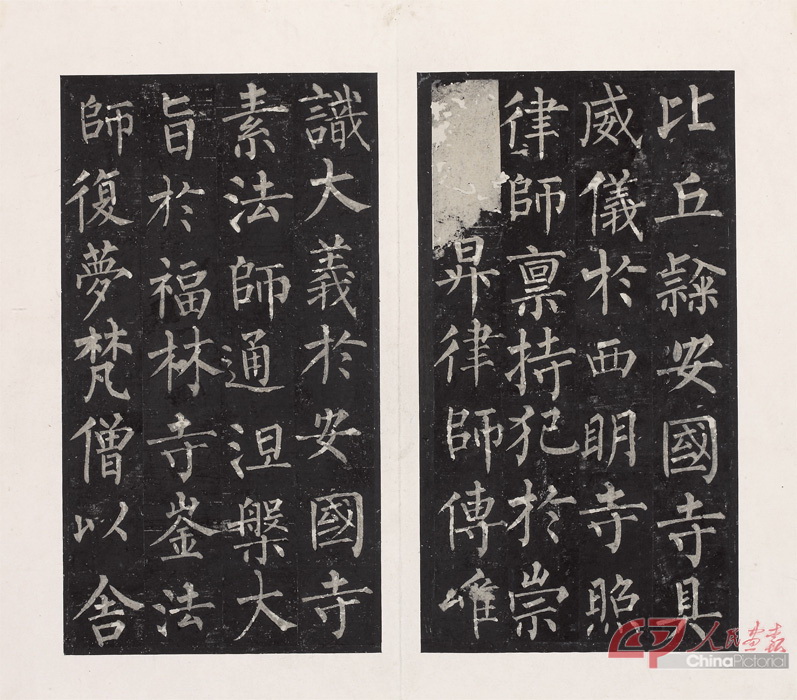 比丘隸安國寺具
威儀於西明寺照
律師禀持犯於崇
昇律師傳唯
識大義於安國寺
素法師通涅槃大
旨於福林寺崟法
師復夢梵僧以舍
人民画报
ChinaPictorial